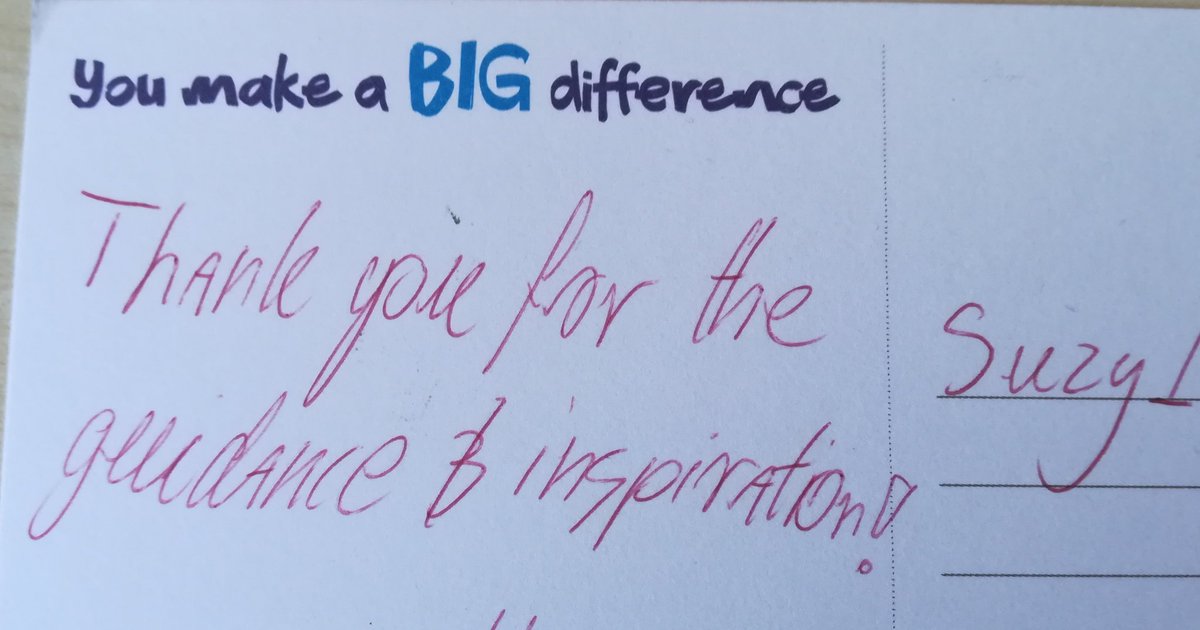 You make a BIG difference
Thank you for the
guidance & inspiration!
Suzy